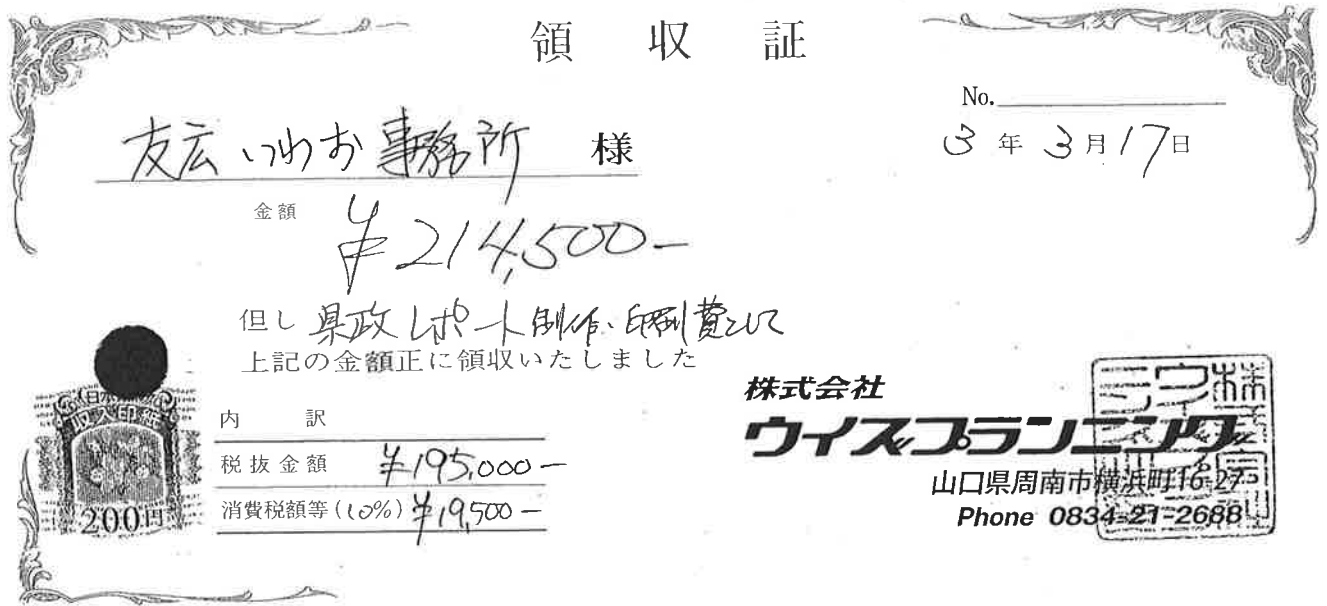 領収証
No.
3年3月17日
友広いわお事務所 様
金額 ¥214,500-
但し 県政レポート制作・印刷費として
上記の金額正に領収いたしました
収入印紙
200円
内訳
税抜金額 ¥195,000-
消費税額等(10%) ¥19,500-
株式会社
ウイズプランニング
山口県周南市横浜町16-27
Phone 0834-21-2688